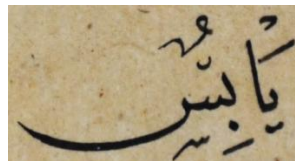 يَابِسٌ